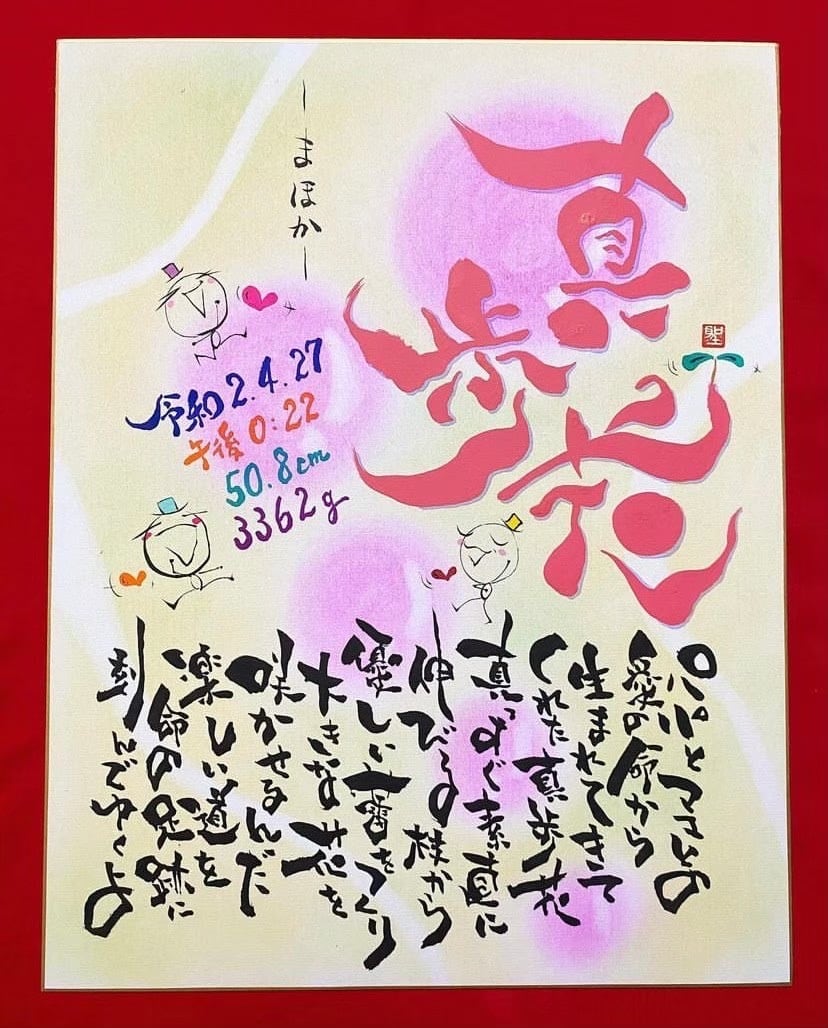 真歩花
聖
ーまほかー
令和2.4.27
午後0:22
50.8cm
3362g
パパとママとの
愛の命から
生まれてきて
くれた真歩花
真っすぐ素直に
伸びるの から
優しい蕾をつくり
大きな花を
咲かせるんだ
楽しい道を
命の足跡に
刻んでゆくよ